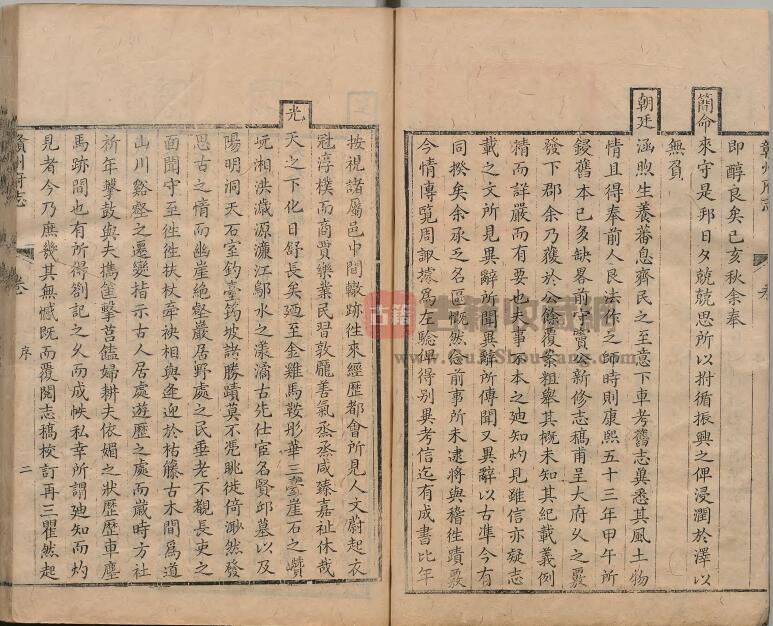 即醇良矣己亥秋余奉
簡命
來守是邦日夕兢兢思所以拊循振興之俾浸潤於澤以
無負
朝廷
涵煦生養蕃息齊民之至意下車考舊志兾悉其風土物
情且得奉前人良法作之師時則康熙五十三年甲午所
鋟舊本已多缺畧前守竇公新修志稿甫呈大府久之覂
發下郡余乃獲於公餘覆案粗舉其槩未知其紀載義例
精而詳嚴而有要也夫事不本之廸知灼見雖信亦疑志
載之文所見異辭所聞異辭所傳聞又異辭以古準今有
同揆矣余承乏名區慨然念前事所未逮將與稽徃蹟覈
今情博覽周諏據爲左騐俾得別異考信迄有成書比年
按視諸屬邑中間轍跡徃來經歷都會所見人文蔚起衣
冠淳樸而商賈樂業民習敦龐善氣烝烝咸臻嘉祉休哉
光
天之下化日舒長矣廼至金雞馬鞍彤華三臺崖石之巑
岏湘洪瀫源濂江鄔水之漾潏古先仕宦名賢邱墓以及
陽明洞天石室釣臺筠坡諸勝蹟莫不凭眺徙倚渺然發
思古之情而幽崖絶壑巖居野處之民垂老不覩長吏之
面聞守至徃徃扶杖牽袂相與逢迎於枯藤古木間爲道
山川谿壑之遷變指示古人居處遊歷之處而歲時方社
祈年擊鼓與夫擕筐擊莒饁婦耕夫依媚之狀歷歷車塵
馬跡間也有所得劄記之久而成帙私幸所謂廸知而灼
見者今乃庶幾其無憾既而覆閱志稿校訂再三瞿然起
贛州府志
卷
序
二
古籍收藏網